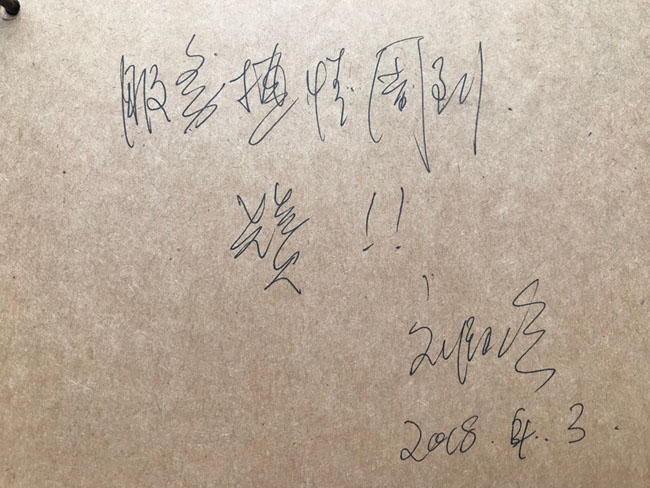 服务热情周到
赞！！
2018.4.3.